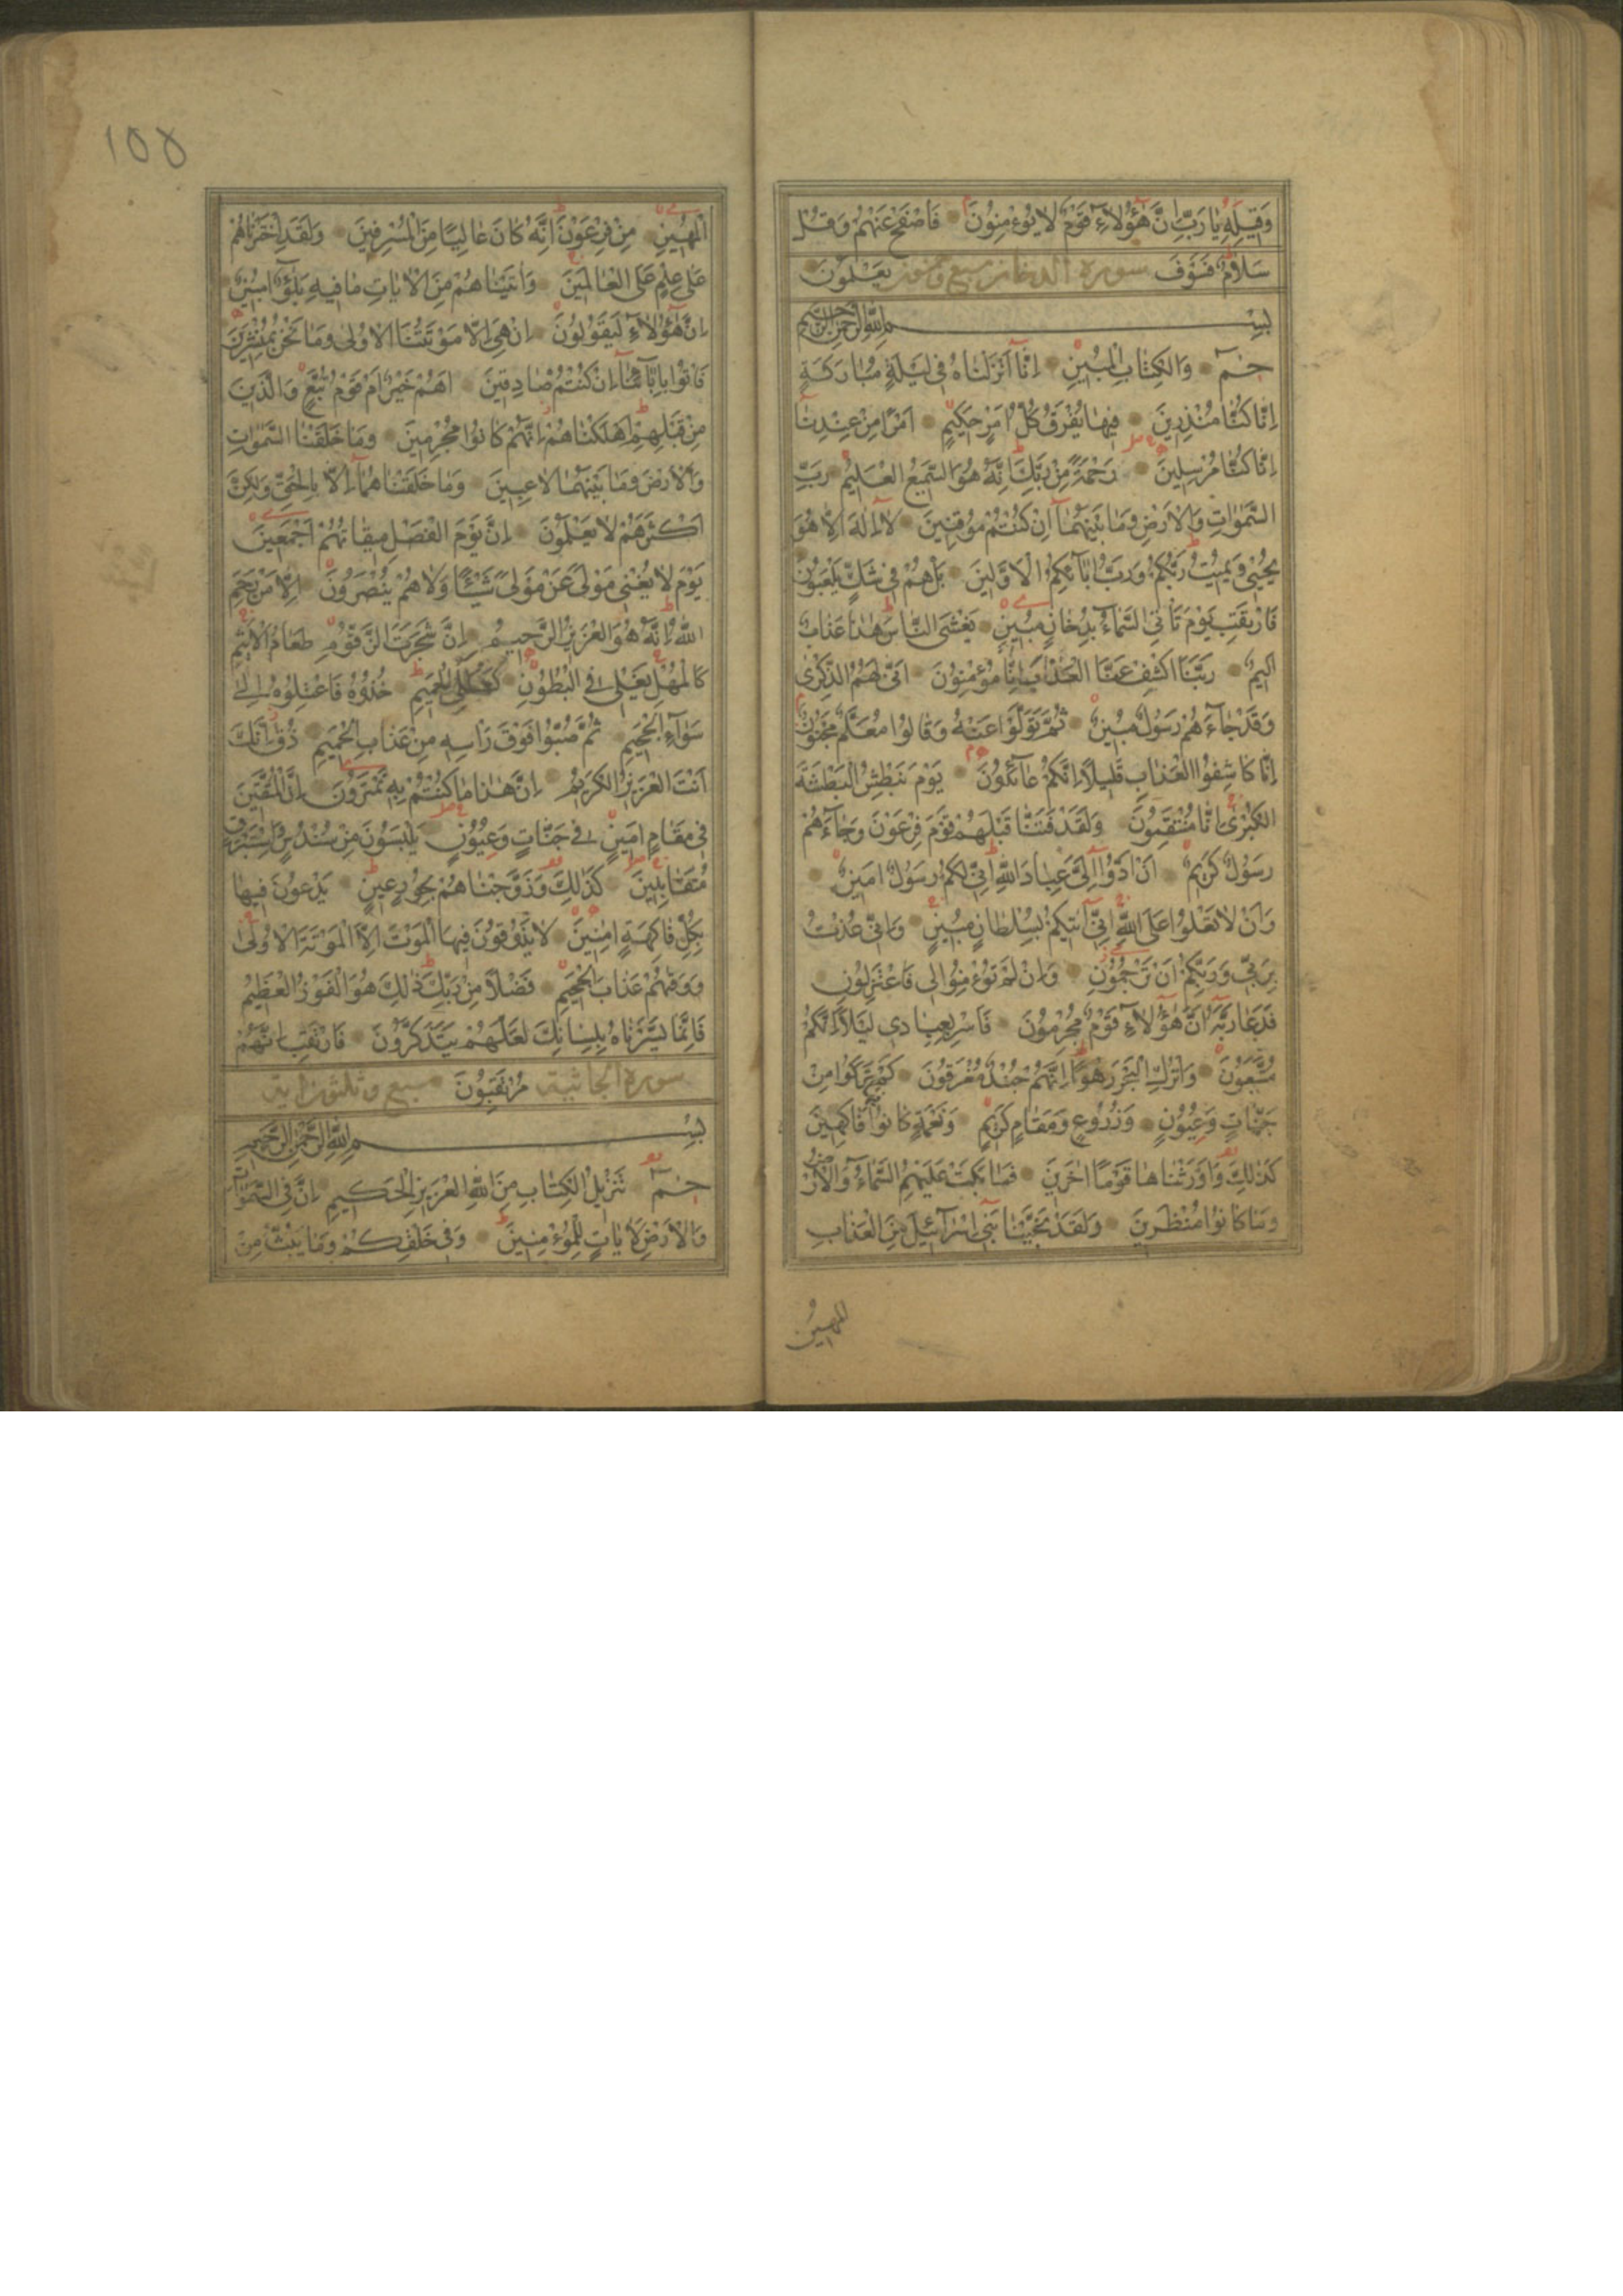 وَقِيلِهِ يَا رَبِّ اِنَّ هٰٓؤُلَاۤءِ قَوْمٌ لَا يُوءْمِنُونَ فَاصْفَحْ عَنْهُمْ وَقُلْ
سَلَامٌ فَسَوْفَ سورة الدخان سبع وخمسون يَعْلَمُونَ
بِسْمِ اللّٰهِ الرَّحْمٰنِ الرَّحِيمِ
حٰمٓ وَالْكِتَابِ الْمُبِينِ اِنَّٓا اَنْزَلْنَاهُ فِي لَيْلَةٍ مُبَارَكَةٍ
اِنَّا كُنَّا مُنْذِرِينَ فِيهَا يُفْرَقُ كُلُّ اَمْرٍ حَكِيمٍ اَمْرًا مِنْ عِنْدِنَا
اِنَّا كُنَّا مُرْسِلِينَ رَحْمَةً مِنْ رَبِّكَ اِنَّهُ هُوَ السَّمِيعُ الْعَلِيمُ رَبِّ
السَّمٰوَاتِ وَالْاَرْضِ وَمَا بَيْنَهُمَا اِنْ كُنْتُمْ مُوقِنِينَ لَا اِلٰهَ اِلَّا هُوَ
يُحْيِي وَيُمِيتُ رَبُّكُمْ وَرَبُّ اٰبَاۤئِكُمُ الْاَوَّلِينَ بَلْ هُمْ فِي شَكٍّ يَلْعَبُونَ
فَارْتَقِبْ يَوْمَ تَأْتِي السَّمَاۤءُ بِدُخَانٍ مُبِينٍ يَغْشَى النَّاسَ هٰذَا عَذَابٌ
اَلِيمٌ رَبَّنَا اكْشِفْ عَنَّا الْعَذَابَ اِنَّا مُؤْمِنُونَ اَنّٰى لَهُمُ الذِّكْرٰى
وَقَدْ جَاۤءَهُمْ رَسُولٌ مُبِينٌ ثُمَّ تَوَلَّوْا عَنْهُ وَقَالُوا مُعَلَّمٌ مَجْنُونٌ
اِنَّا كَاشِفُوا الْعَذَابِ قَلِيلًا اِنَّكُمْ عَاۤئِدُونَ يَوْمَ نَبْطِشُ الْبَطْشَةَ
الْكُبْرٰى اِنَّا مُنْتَقِمُونَ وَلَقَدْ فَتَنَّا قَبْلَهُمْ قَوْمَ فِرْعَوْنَ وَجَاۤءَهُمْ
رَسُولٌ كَرِيمٌ اَنْ اَدُّوا اِلَيَّ عِبَادَ اللّٰهِ اِنِّي لَكُمْ رَسُولٌ اَمِينٌ
وَاَنْ لَا تَعْلُوا عَلَى اللّٰهِ اِنِّي اٰتِيكُمْ بِسُلْطَانٍ مُبِينٍ وَاِنِّي عُذْتُ
بِرَبِّي وَرَبِّكُمْ اَنْ تَرْجُمُونِ وَاِنْ لَمْ تُوءْمِنُوا لِي فَاعْتَزِلُونِ
فَدَعَا رَبَّهُ اَنَّ هٰٓؤُلَاۤءِ قَوْمٌ مُجْرِمُونَ فَاَسْرِ بِعِبَادِي لَيْلًا اِنَّكُمْ
مُتَّبَعُونَ وَاتْرُكِ الْبَحْرَ رَهْوًا اِنَّهُمْ جُنْدٌ مُغْرَقُونَ كَمْ تَرَكُوا مِنْ
جَنَّاتٍ وَعُيُونٍ وَزُرُوعٍ وَمَقَامٍ كَرِيمٍ وَنَعْمَةٍ كَانُوا فِيهَا فَاكِهِينَ
كَذٰلِكَ وَاَوْرَثْنَاهَا قَوْمًا اٰخَرِينَ فَمَا بَكَتْ عَلَيْهِمُ السَّمَاۤءُ وَالْاَرْضُ
وَمَا كَانُوا مُنْظَرِينَ وَلَقَدْ نَجَّيْنَا بَنِي اِسْرَاۤئِيلَ مِنَ الْعَذَابِ
المهين
١٥٥
الْمُهِينِ مِنْ فِرْعَوْنَ اِنَّهُ كَانَ عَالِيًا مِنَ الْمُسْرِفِينَ وَلَقَدِ اخْتَرْنَاهُمْ
عَلٰى عِلْمٍ عَلَى الْعَالَمِينَ وَاٰتَيْنَاهُمْ مِنَ الْاٰيَاتِ مَا فِيهِ بَلٰٓؤٌا مُبِينٌ
اِنَّ هٰٓؤُلَاۤءِ لَيَقُولُونَ اِنْ هِيَ اِلَّا مَوْتَتُنَا الْاُولٰى وَمَا نَحْنُ بِمُنْشَرِينَ
فَأْتُوا بِاٰبَاۤئِنَا اِنْ كُنْتُمْ صَادِقِينَ اَهُمْ خَيْرٌ اَمْ قَوْمُ تُبَّعٍ وَالَّذِينَ
مِنْ قَبْلِهِمْ اَهْلَكْنَاهُمْ اِنَّهُمْ كَانُوا مُجْرِمِينَ وَمَا خَلَقْنَا السَّمٰوَاتِ
وَالْاَرْضَ وَمَا بَيْنَهُمَا لَاعِبِينَ وَمَا خَلَقْنَاهُمَا اِلَّا بِالْحَقِّ وَلٰكِنَّ
اَكْثَرَهُمْ لَا يَعْلَمُونَ اِنَّ يَوْمَ الْفَصْلِ مِيقَاتُهُمْ اَجْمَعِينَ
يَوْمَ لَا يُغْنِي مَوْلًى عَنْ مَوْلًى شَيْئًا وَلَا هُمْ يُنْصَرُونَ اِلَّا مَنْ رَحِمَ
اللّٰهُ اِنَّهُ هُوَ الْعَزِيزُ الرَّحِيمُ اِنَّ شَجَرَتَ الزَّقُّومِ طَعَامُ الْاَثِيمِ
كَالْمُهْلِ يَغْلِي فِي الْبُطُونِ كَغَلْيِ الْحَمِيمِ خُذُوهُ فَاعْتِلُوهُ اِلٰى
سَوَاۤءِ الْجَحِيمِ ثُمَّ صُبُّوا فَوْقَ رَأْسِهِ مِنْ عَذَابِ الْحَمِيمِ ذُقْ اِنَّكَ
اَنْتَ الْعَزِيزُ الْكَرِيمُ اِنَّ هٰذَا مَا كُنْتُمْ بِهِ تَمْتَرُونَ اِنَّ الْمُتَّقِينَ
فِي مَقَامٍ اَمِينٍ فِي جَنَّاتٍ وَعُيُونٍ يَلْبَسُونَ مِنْ سُنْدُسٍ وَاِسْتَبْرَقٍ
مُتَقَابِلِينَ كَذٰلِكَ وَزَوَّجْنَاهُمْ بِحُورٍ عِينٍ يَدْعُونَ فِيهَا
بِكُلِّ فَاكِهَةٍ اٰمِنِينَ لَا يَذُوقُونَ فِيهَا الْمَوْتَ اِلَّا الْمَوْتَةَ الْاُولٰى
وَوَقٰيهُمْ عَذَابَ الْجَحِيمِ فَضْلًا مِنْ رَبِّكَ ذٰلِكَ هُوَ الْفَوْزُ الْعَظِيمُ
فَاِنَّمَا يَسَّرْنَاهُ بِلِسَانِكَ لَعَلَّهُمْ يَتَذَكَّرُونَ فَارْتَقِبْ اِنَّهُمْ
سورة الجاثية مُرْتَقِبُونَ سبع وثلثون اية
بِسْمِ اللّٰهِ الرَّحْمٰنِ الرَّحِيمِ
حٰمٓ تَنْزِيلُ الْكِتَابِ مِنَ اللّٰهِ الْعَزِيزِ الْحَكِيمِ اِنَّ فِي السَّمٰوَاتِ
وَالْاَرْضِ لَاٰيَاتٍ لِلْمُوءْمِنِينَ وَفِي خَلْقِكُمْ وَمَا يَبُثُّ مِنْ